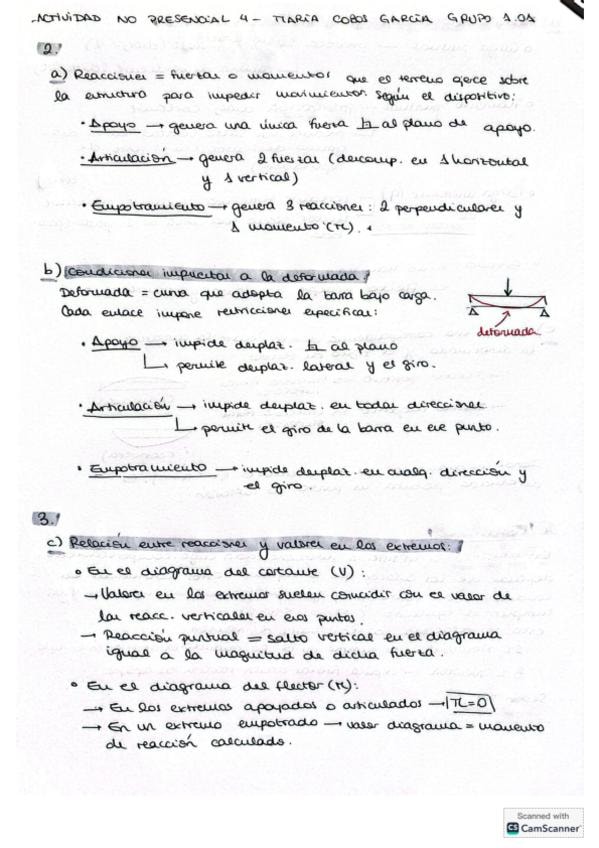 ACTIVIDAD NO PRESENCIAL 4 - MARÍA COBOS GARCÍA GRUPO 1.01
2.
a) Reacciones = fuerzas o momentos que el terreno ejerce sobre
la estructura para impedir movimientos según el dispositivo:
• Apoyo → genera una única fuerza al plano de apoyo.
• Articulación → genera 2 fuerzas (descomp. en 1 horizontal
y 1 vertical)
• Empotramiento → genera 3 reacciones: 2 perpendiculares y
1 momento (M).
b) Condiciones impuestas a la deformada:
Deformada = curva que adopta la barra bajo carga.
Cada enlace impone restricciones específicas:
deformada
• Apoyo → impide desplaz. al plano
↳ permite desplaz. lateral y el giro.
• Articulación → impide desplaz. en todas direcciones
↳ permite el giro de la barra en ese punto.
• Empotramiento → impide desplaz. en cualq. dirección y
el giro.
3.
c) Relación entre reacciones y valores en los extremos:
• En el diagrama del cortante (V):
→ Valores en los extremos suelen coincidir con el valor de
las reacc. verticales en esos puntos.
→ Reacción puntual = salto vertical en el diagrama
igual a la magnitud de dicha fuerza.
• En el diagrama del flector (M):
→ En los extremos apoyados o articulados → M=0
→ En un extremo empotrado → valor diagrama = momento
de reacción calculado.
Scanned with
CS CamScanner